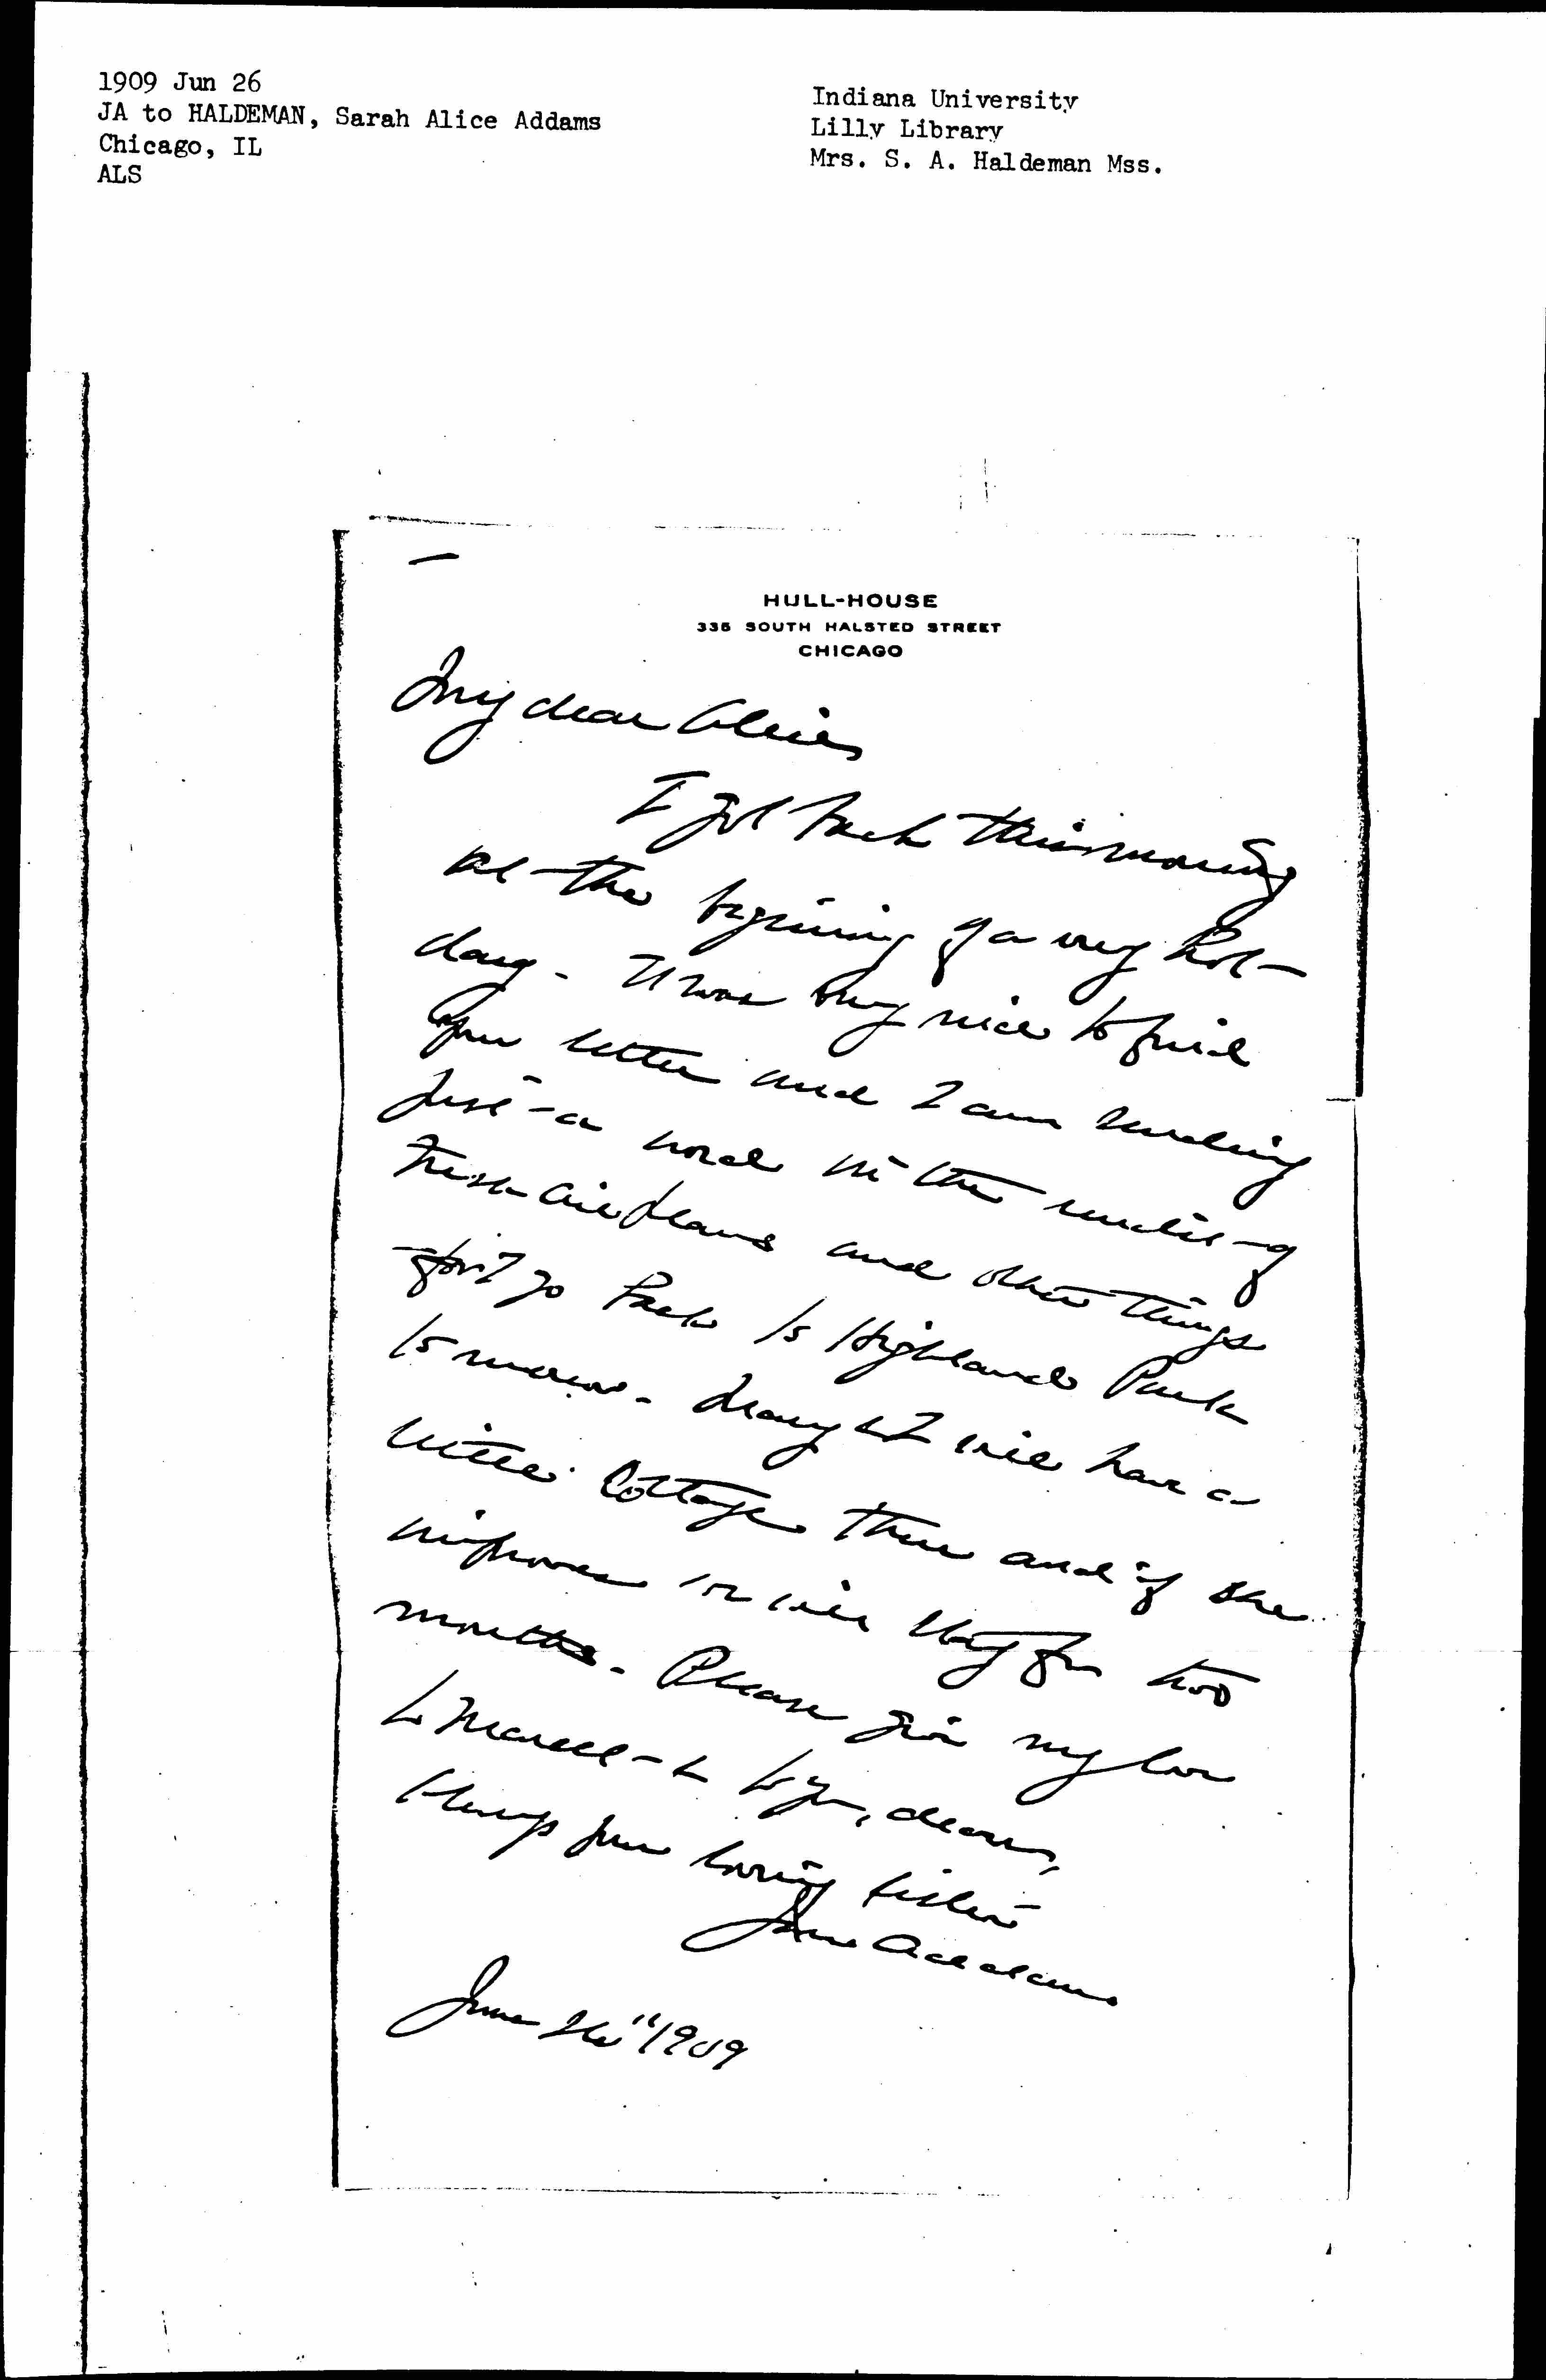 1909 Jun 26
JA to HALDEMAN, Sarah Alice Addams
Chicago, IL
ALS
Indiana University
Lilly Library
Mrs. S. A. Haldeman Mss.
HULL-HOUSE
335 SOUTH HALSTED STREET
CHICAGO
My dear Alice
I got back this morning
at the begining of a very hot
day. It was very nice to find
your letter and I am sending
just a word in the midst of
fresh air plans and other things
for I go back to Highland Park
to morrow. Mary & I will have a
little cottage there and if she
improves we will stay for two
months. Please give my love
to Marcet & to you, dear,
Always your loving sister
Jane Addams
June 26" 1909